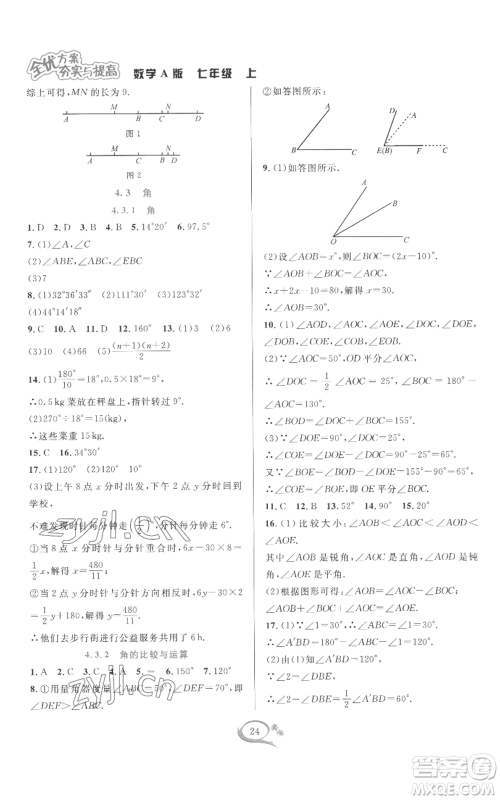 全优方案
夯实与提高
数学A版 七年级 上
综上可得,MN的长为9.
A M D N B
图1
A M D N B
图2
4.3 角
4.3.1 角
1. D 2. B 3. A 4. D 5. 14°20′ 6. 97.5°
7. (1)∠A,∠C
(2)∠ABE,∠ABC,∠EBC
(3)7
8. (1)32°36′33″ (2)111°33′ (3)123°22′
(4)44°14′15″
9. C 10. A 11. D 12. 160° 13. (1)3 (2)6
(3)10 (4)66 (5) (n+1)(n+2)/2
14. (1) 180°/10 =18°,0.5×18°=9°,
∴0.5 kg菜放上去,指针转过9°.
(2)270°÷18°=15(kg),
∴这些菜重15 kg.
15. C 16. 34°30′
17. (1)120° (2)120°
(3)设上午8点x分时出发,下午2点y分时回到
学校,
①当8点x分时针与分针重合时,6x-30×8=
1/2 x,解得x= 480/11;
②当2点y分时针与分针方向相反时,6y-30×2
= 1/2 y+180,解得y= 480/11.
∴他们去步行街进行公益服务共用了6 h.
4.3.2 角的比较与运算
1. A 2. C 3. A 4. B 5. 70° 6. = 7. 15°
8. ①用量角器度量
∠DEF>∠ABC.
②如答图所示:
A B C
A D E(B) F
9. (1)如答图所示.
A B O C
(2)设∠AOB=x°,则∠BOC=(2x-10)°.
∵∠AOC=∠AOB+∠BOC=80°,
∴x+2x-10=80,解得x=30.
∴∠AOB=30°.
10. (1)∠AOD,∠AOE,∠AOC
∠BOE,∠AOE,∠COE
(2)∵∠AOC=50°,OD平分∠AOC,
∴∠DOC= 1/2 ∠AOC=25°,
∠BOC=180°-∠AOC=130°.
∴∠BOD=∠DOC+∠BOC=155°.
(3)∵∠DOE=90°,∠DOC=25°,
∴∠COE=∠DOE-∠DOC=90°-25°=65°.
又∵∠BOE=∠BOD-∠DOE=155°-90°=65°,
∴∠COE=∠BOE.
11. C 12. B 13. 52° 14. 90° 15. 20°
16. (1)比较大小:∠AOB<∠AOC<∠AOD
<∠AOE.
其中∠AOB是锐角,∠AOC是直角,∠AOD是
钝角,∠AOE是平角.
(2)根据图形可得:∠AOC=∠AOB+∠BOC,
∠AOB=∠AOC-∠BOC.
17. (1)∵∠1=30°,
∴∠A′BD=180°-2∠1=120°.
(2)由(1)知∠A′BD=120°,
又∵∠2=∠DBE,
∴∠2= 1/2 ∠A′BD=60°.
24
zyjl.cn